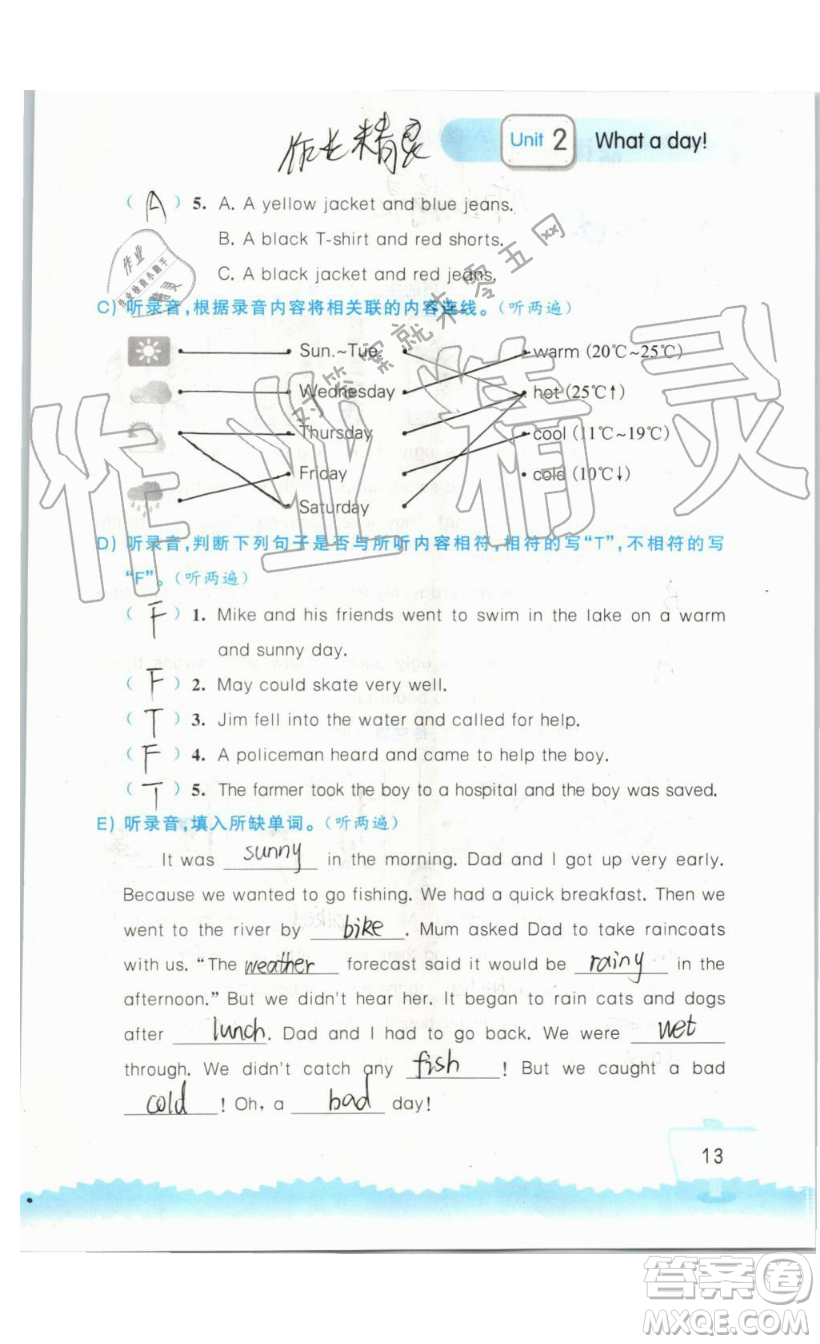 作业精灵
Unit 2 What a day!
( A ) 5. A. A yellow jacket and blue jeans.
B. A black T-shirt and red shorts.
C. A black jacket and red jeans.
作业
作业检查小助手
精灵
对答案就来零五网
C) 听录音,根据录音内容将相关联的内容连线。(听两遍)
Sun.~Tue. warm (20℃~25℃)
Wednesday hot (25℃↑)
Thursday cool (11℃~19℃)
Friday cold (10℃↓)
Saturday
作业精灵
D) 听录音,判断下列句子是否与所听内容相符,相符的写“T”,不相符的写
“F”。(听两遍)
( F ) 1. Mike and his friends went to swim in the lake on a warm
and sunny day.
( F ) 2. May could skate very well.
( T ) 3. Jim fell into the water and called for help.
( F ) 4. A policeman heard and came to help the boy.
( T ) 5. The farmer took the boy to a hospital and the boy was saved.
E) 听录音,填入所缺单词。(听两遍)
It was sunny in the morning. Dad and I got up very early.
Because we wanted to go fishing. We had a quick breakfast. Then we
went to the river by bike. Mum asked Dad to take raincoats
with us. “The weather forecast said it would be rainy in the
afternoon.” But we didn't hear her. It began to rain cats and dogs
after lunch. Dad and I had to go back. We were wet
through. We didn't catch any fish! But we caught a bad
cold! Oh, a bad day!
13
答案卷
MXQE.COM